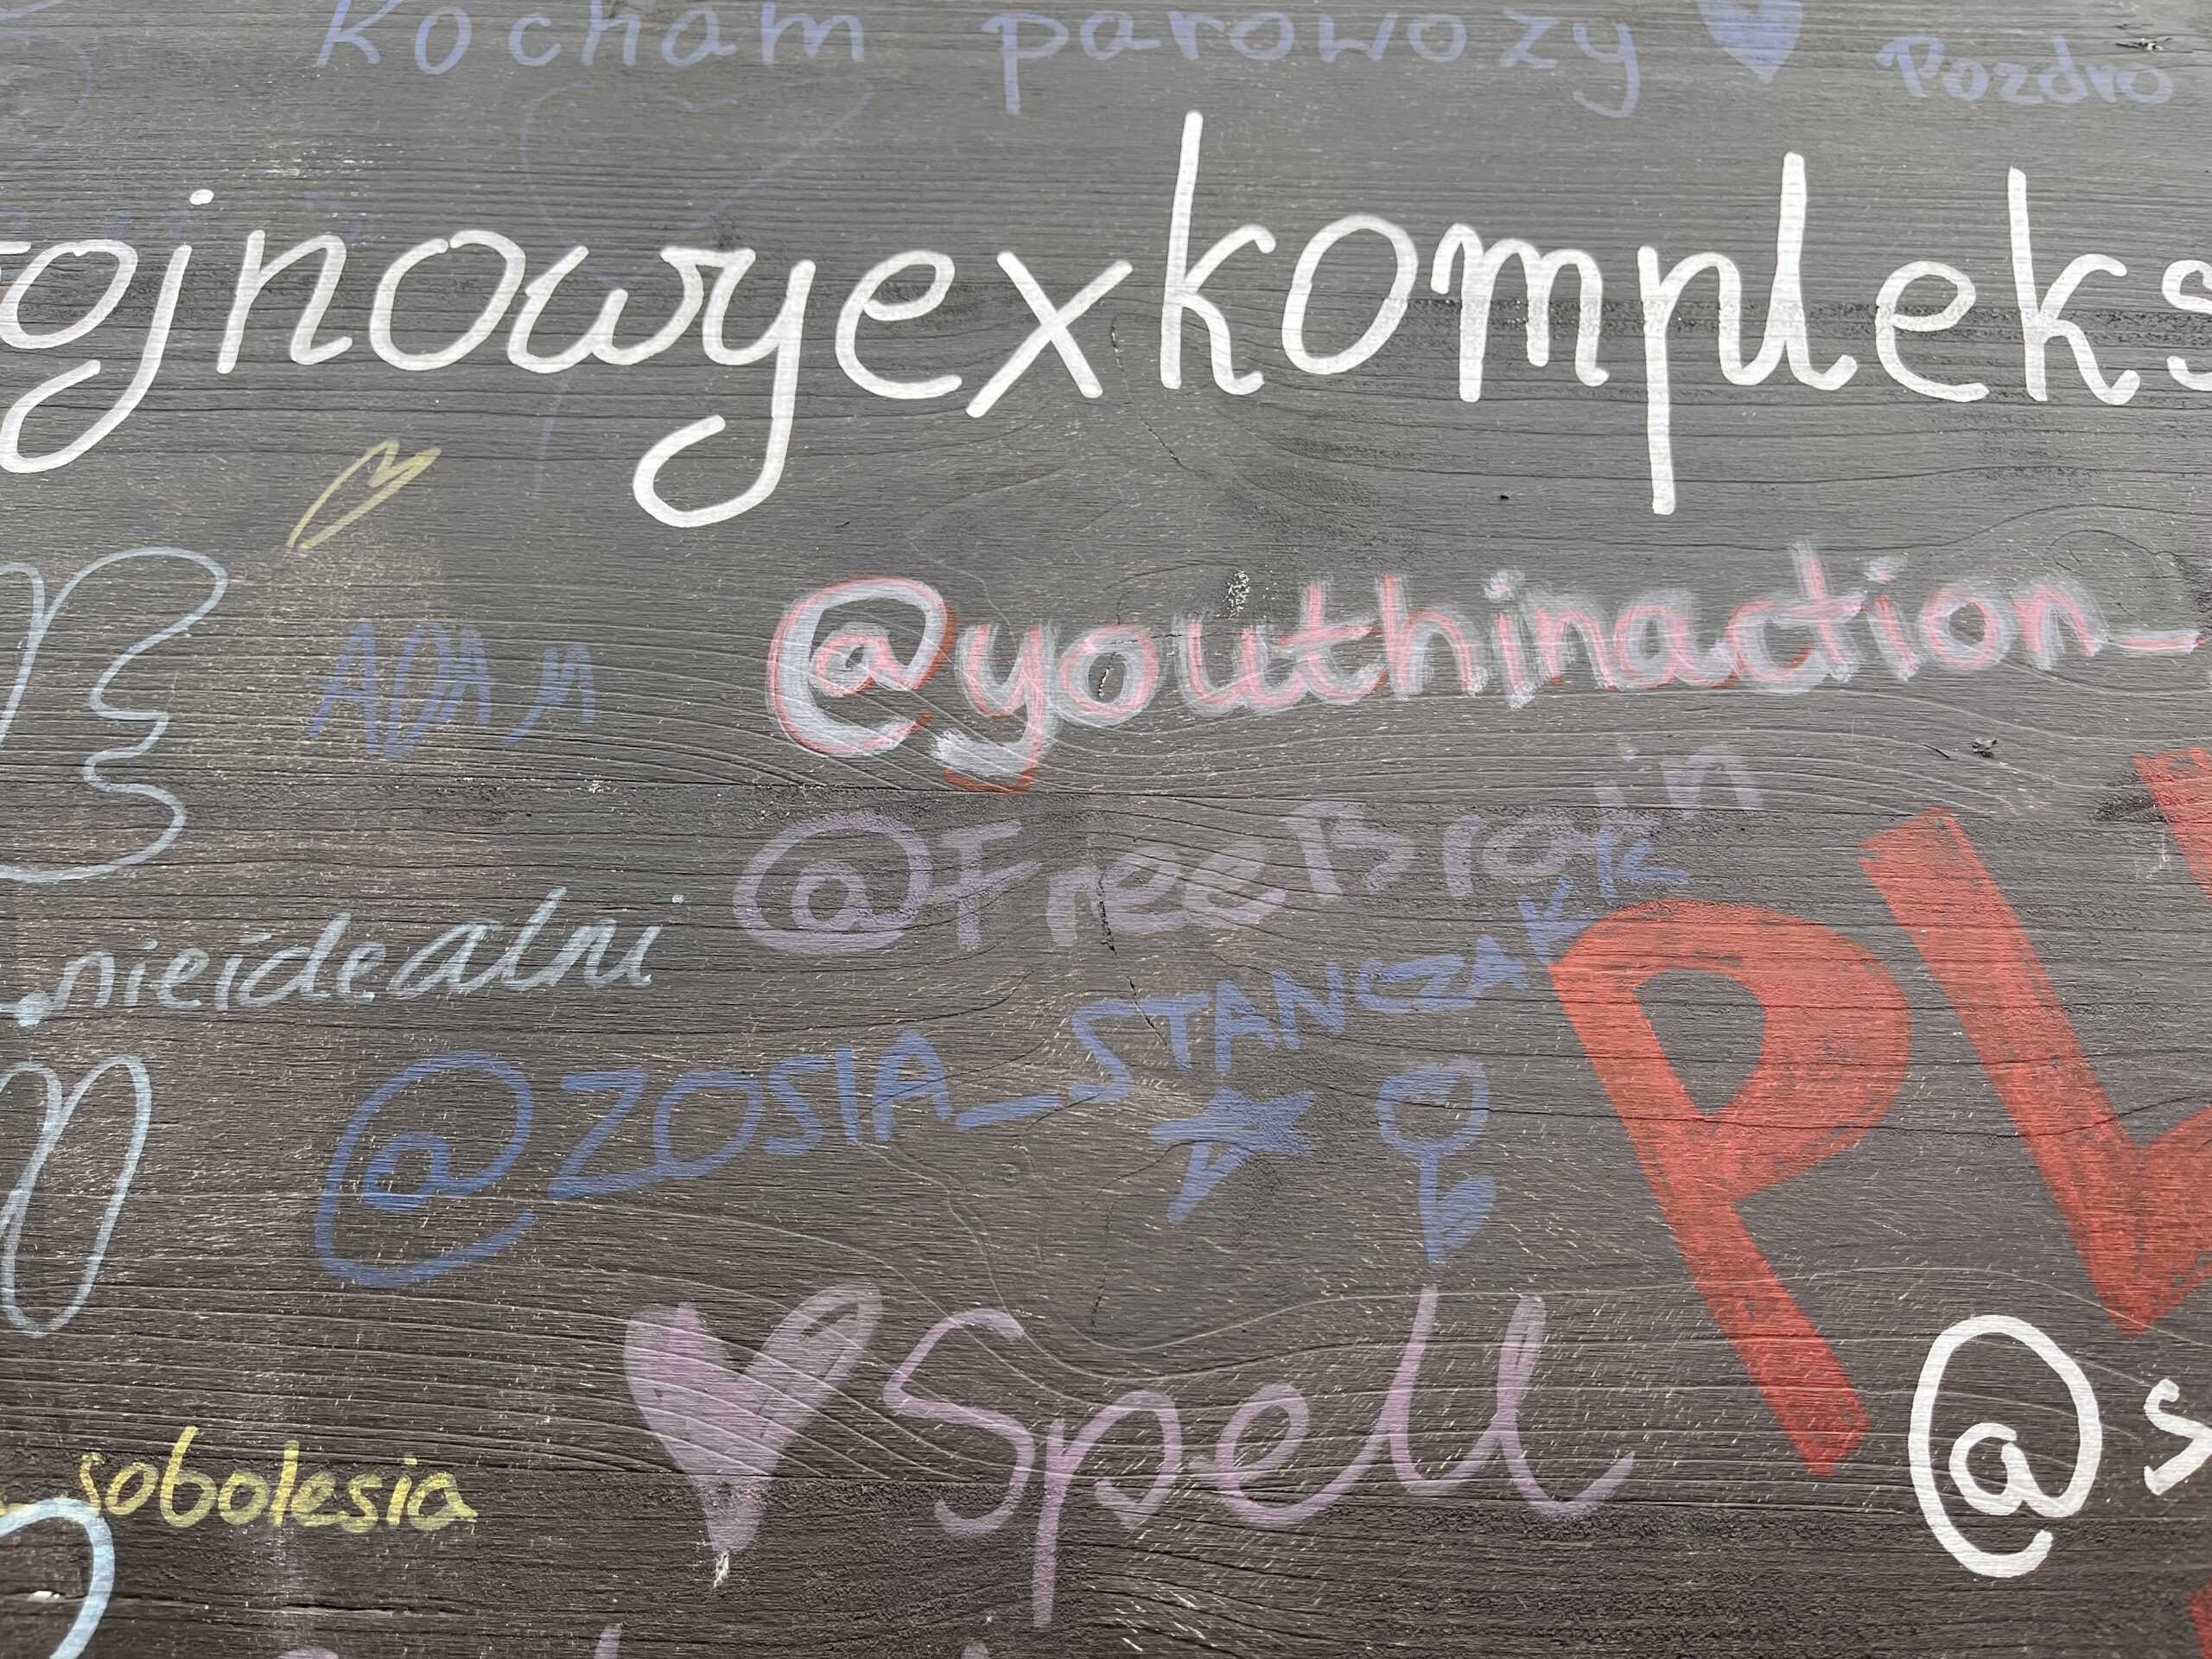 Kocham parowozy Pozdro
ojnowyexkompleks
@youthinaction_
ADAM
@FreeBrain
nieidealni
@ZOSIA_STANCZAKK
PL
Spell
@s
sobolesia